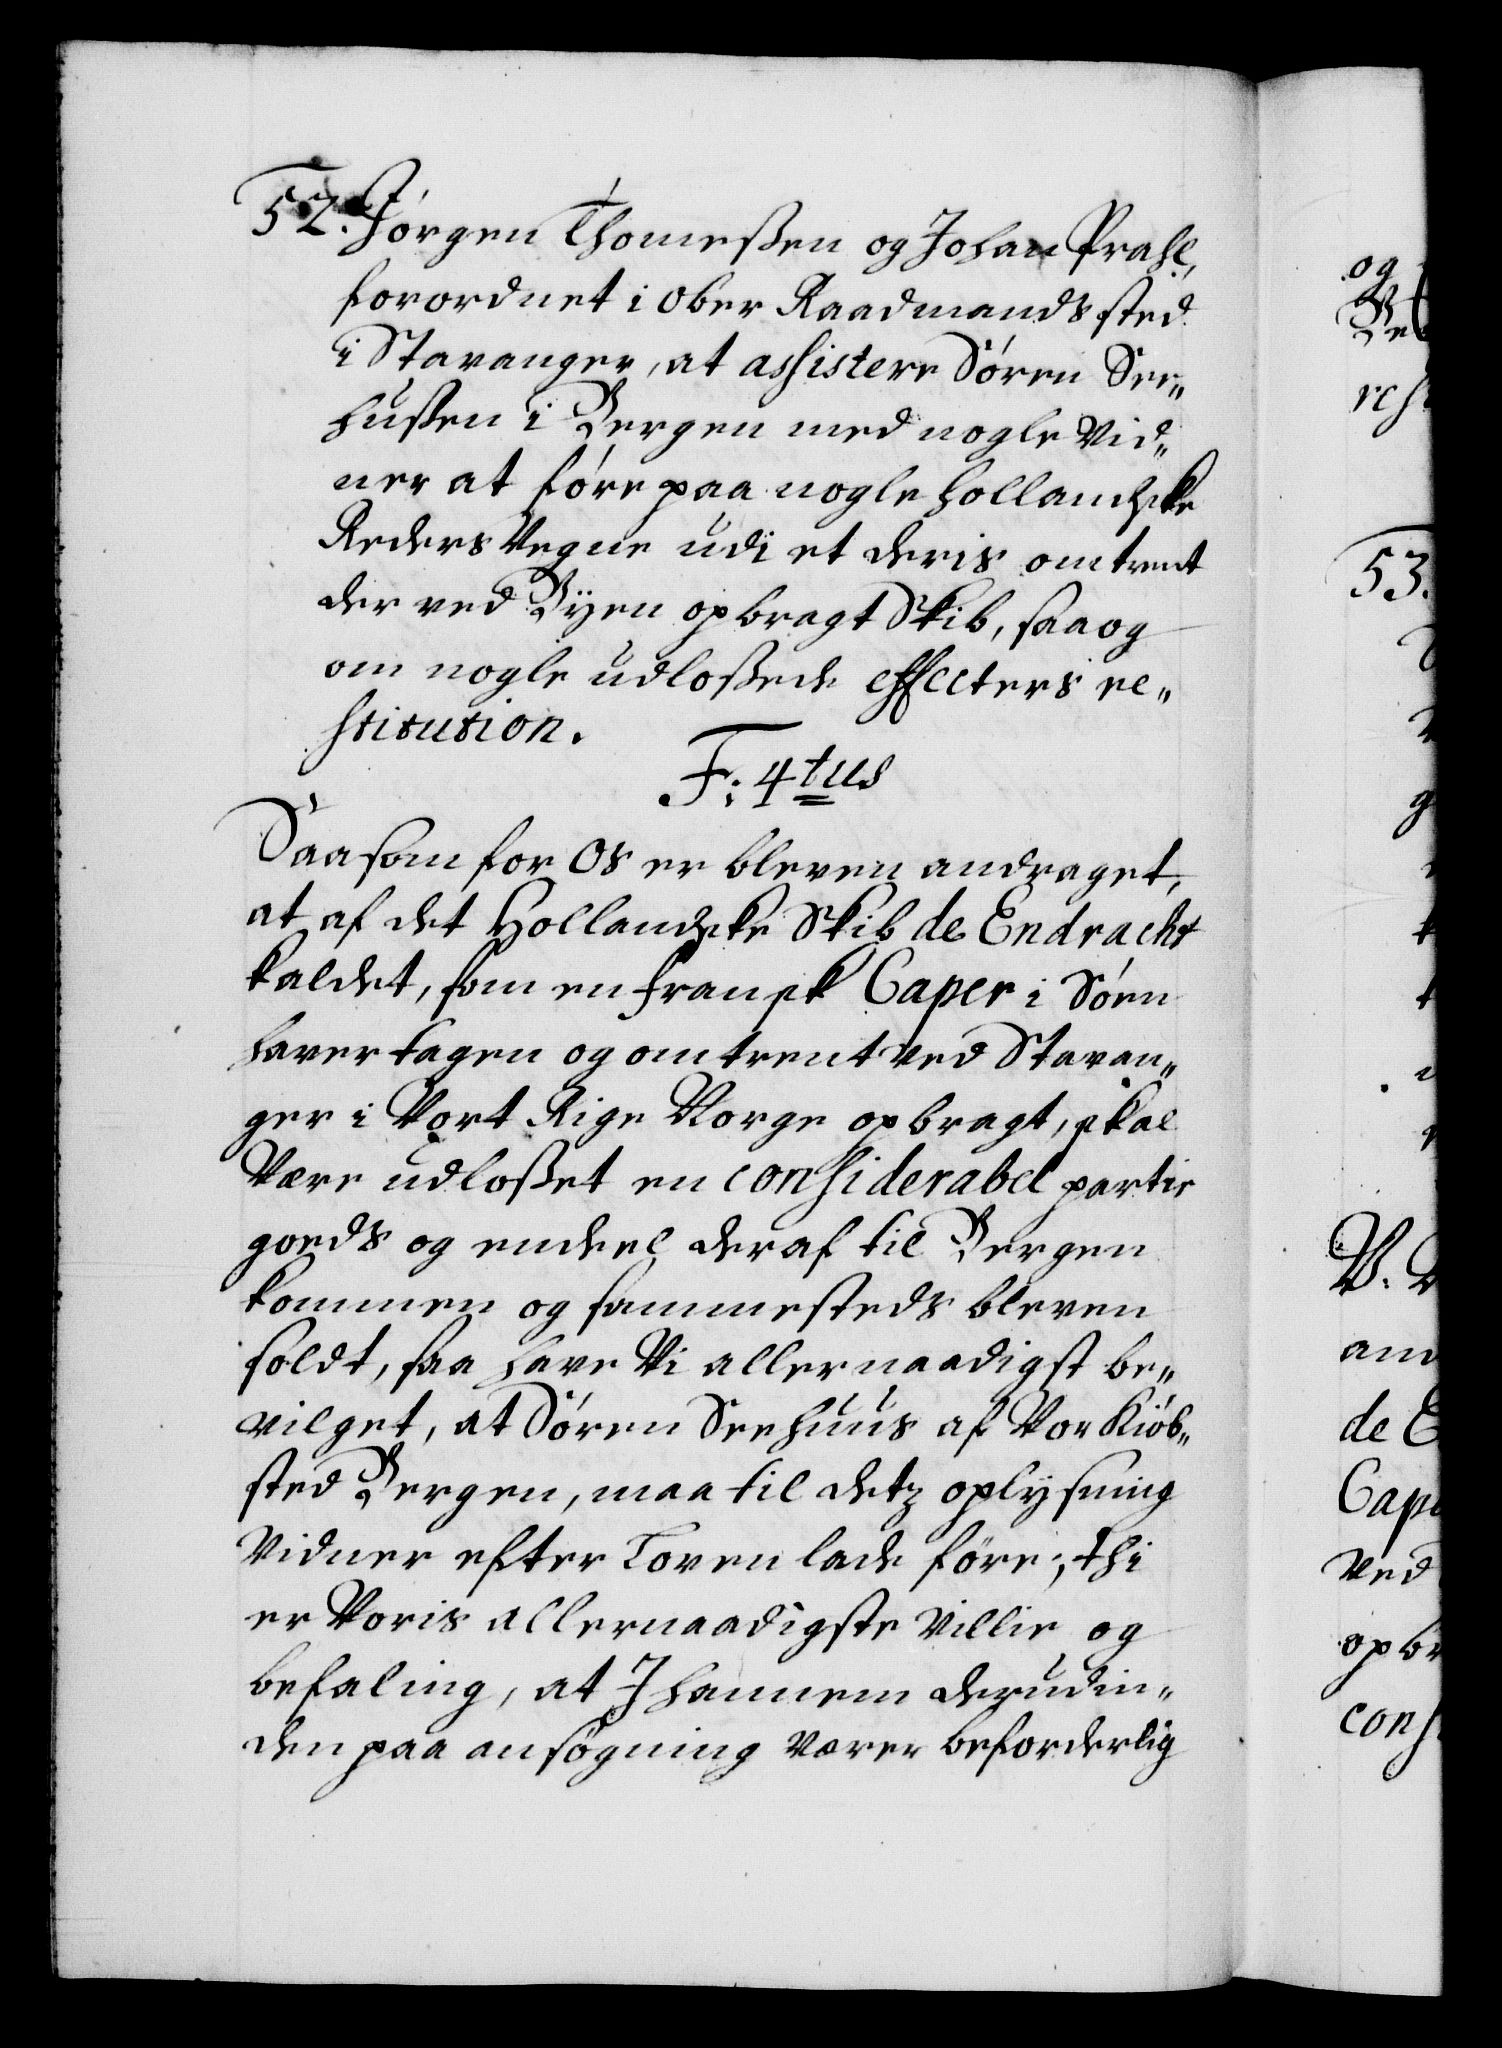 52. Jórgen Thomeßen og Johan Prahl,
forordnet i ober Raadmands sted
i Stavanger, at assistere Sóren See„
hußen i Bergen med nogle Vid„
ner at fóre paa nogle hollandske
Reders Vegne udi et deris omtrent
der ved Byen opbragt Skib, saa og
om nogle udloßede effecters re„
stitution.
F: 4tus
Saasom for Os er bleven andraget,
at af det Hollandske Skib de Endracht
kaldet, som en fransk Caper i Sóen
haver tagen og omtrent ved Stavan„
ger i Vort Rige Norge opbragt, skal
Være udloßet en considerabel partie
goeds og endeel deraf til Bergen
kommen og sammesteds bleven
soldt, saa have Vi allernaadigst be„
vilget, at Sóren Seehuus af Vor Kiób„
sted Bergen, maa til detz oplysning
Vidner efter Loven lade före; thi
er Voris allernaadigste Villie og
befaling, at I hannem derudin„
den paa ansógning Værer beforderlig
og
Ve
rest
53.
V. V
and
de E
Cape
Ved
opbr
cons